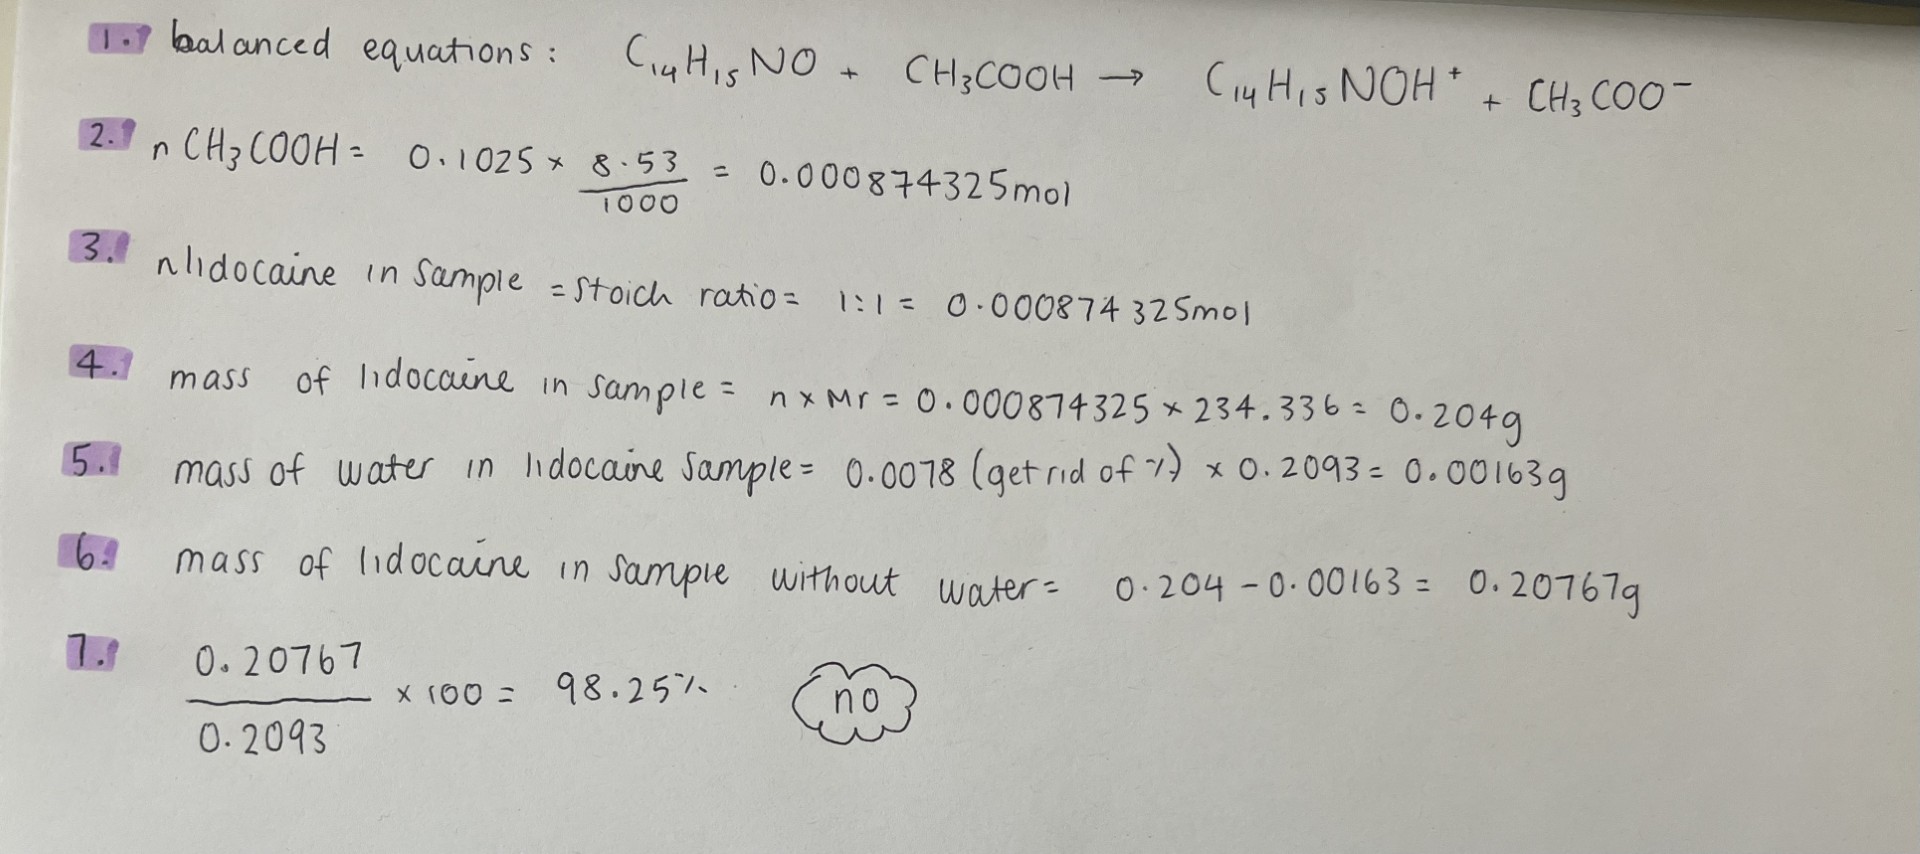 1. balanced equations: C₁₄H₁₅NO + CH₃COOH → C₁₄H₁₅NOH⁺ + CH₃COO⁻
2. n CH₃COOH = 0.1025 × 8.53/1000 = 0.000874325mol
3. n lidocaine in sample = stoich ratio = 1:1 = 0.000874325mol
4. mass of lidocaine in sample = n × Mr = 0.000874325 × 234.336 = 0.204g
5. mass of water in lidocaine sample = 0.0078 (get rid of %) × 0.2093 = 0.00163g
6. mass of lidocaine in sample without water = 0.204 - 0.00163 = 0.20767g
7. 0.20767/0.2093 × 100 = 98.25% no